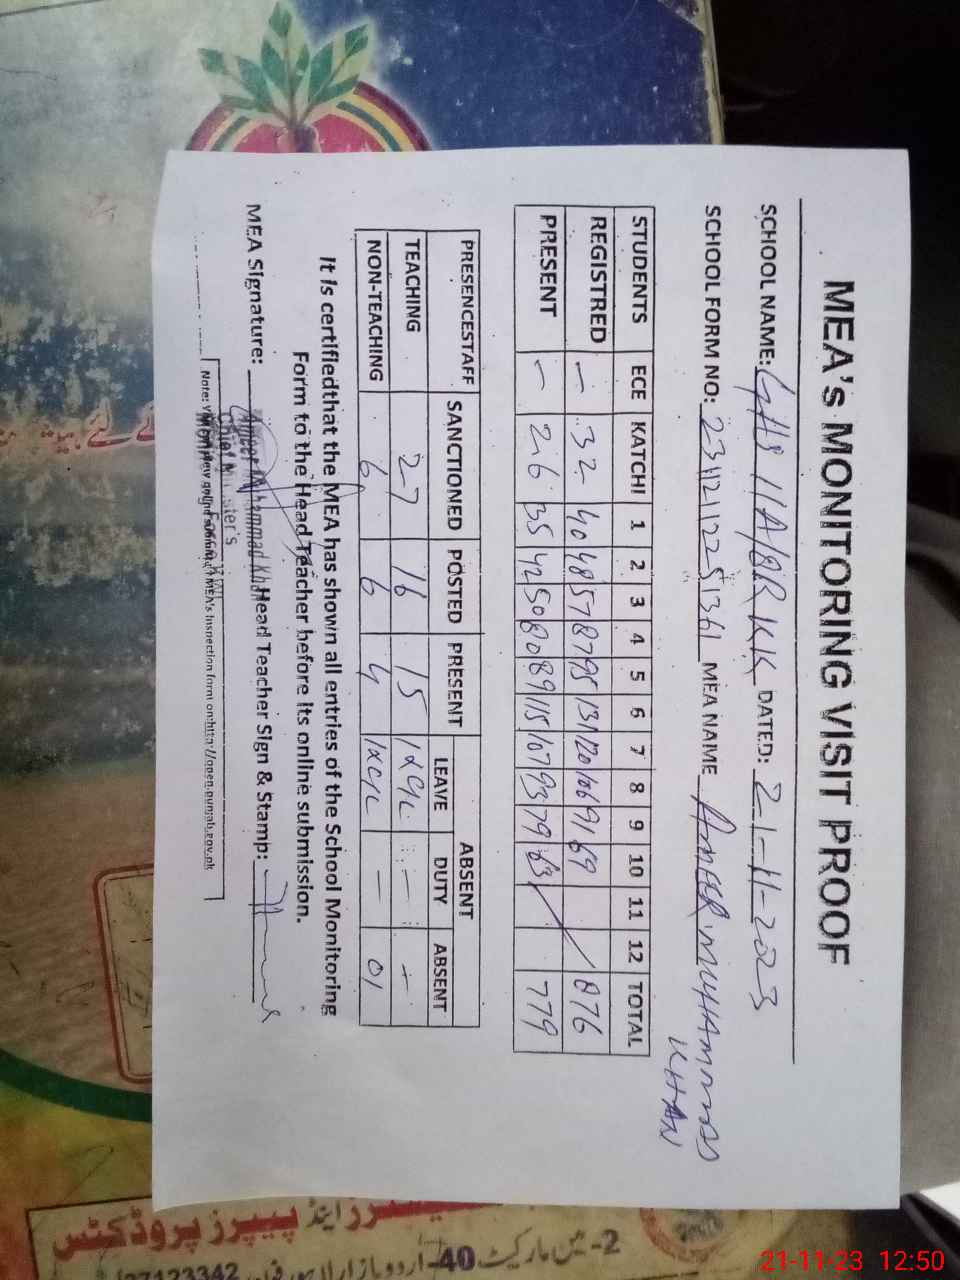 MEA's MONITORING VISIT PROOF
SCHOOL NAME: GHS 11A/8R KK DATED: 21-11-2023
SCHOOL FORM NO: 23112112251361 MEA NAME AMEER MUHAMMAD KHAN
STUDENTS ECE KATCHI 1 2 3 4 5 6 7 8 9 10 11 12 TOTAL
REGISTRED — 32 40 48 57 87 95 131 120 106 91 69 876
PRESENT — 26 35 42 50 80 89 115 107 93 79 63 779
PRESENCESTAFF SANCTIONED POSTED PRESENT ABSENT
LEAVE DUTY ABSENT
TEACHING 27 16 15 — —
NON-TEACHING 6 6 4 — 01
It is certifiedthat the MEA has shown all entries of the School Monitoring
Form to the Head Teacher before its online submission.
MEA Signature: Head Teacher Sign & Stamp:
Ameer Muhammad Khan
Chief Minister's
MEA's Inspection form on:http://open.punjab.gov.pk
پیپرز پروڈکٹس
2- مین مارکیٹ 40-اردو بازار لاہور
37123342
21-11-23 12:50